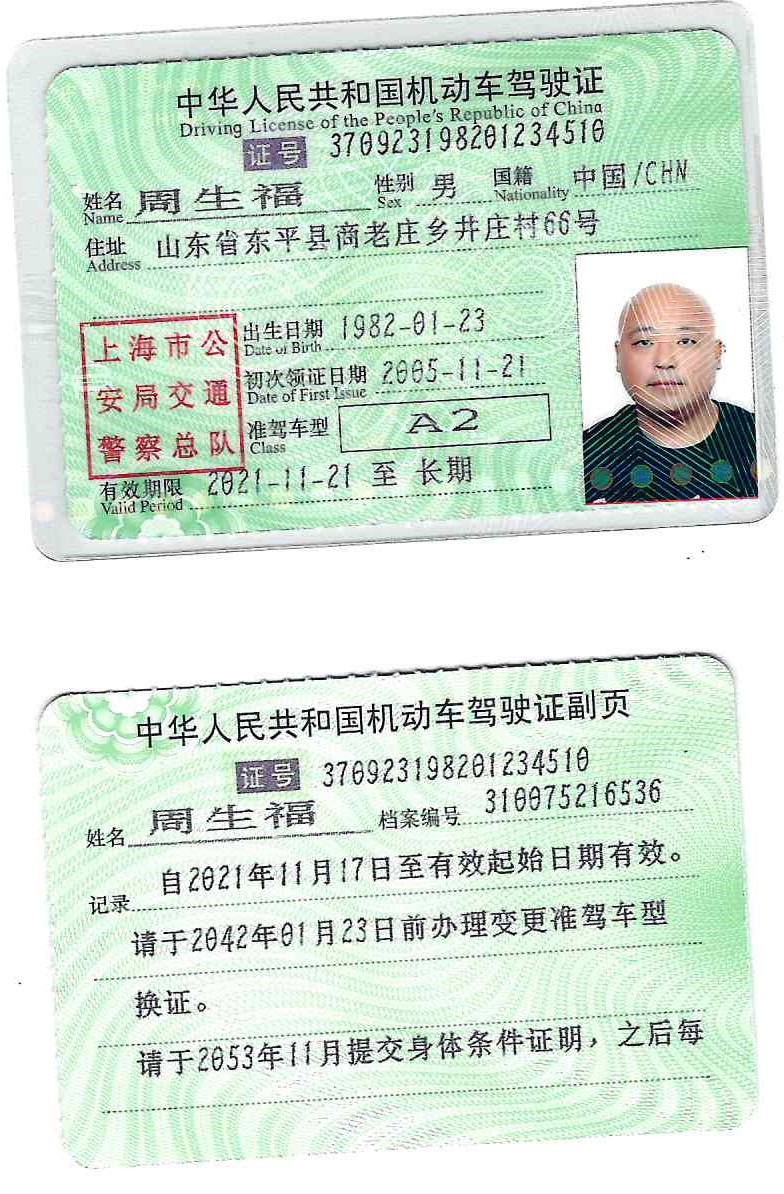 中华人民共和国机动车驾驶证
Driving License of the People's Republic of China
证号 370923198201234510
姓名 周生福 性别 男 国籍 中国/CHN
Name Sex Nationality
住址 山东省东平县商老庄乡井庄村66号
Address
上海市公
安局交通
警察总队
出生日期 1982-01-23
Date of Birth
初次领证日期 2005-11-21
Date of First Issue
准驾车型 A2
Class
有效期限 2021-11-21 至 长期
Valid Period
中华人民共和国机动车驾驶证副页
证号 370923198201234510
姓名 周生福 档案编号 310075216536
记录 自2021年11月17日至有效起始日期有效。
请于2042年01月23日前办理变更准驾车型
换证。
请于2053年11月提交身体条件证明，之后每